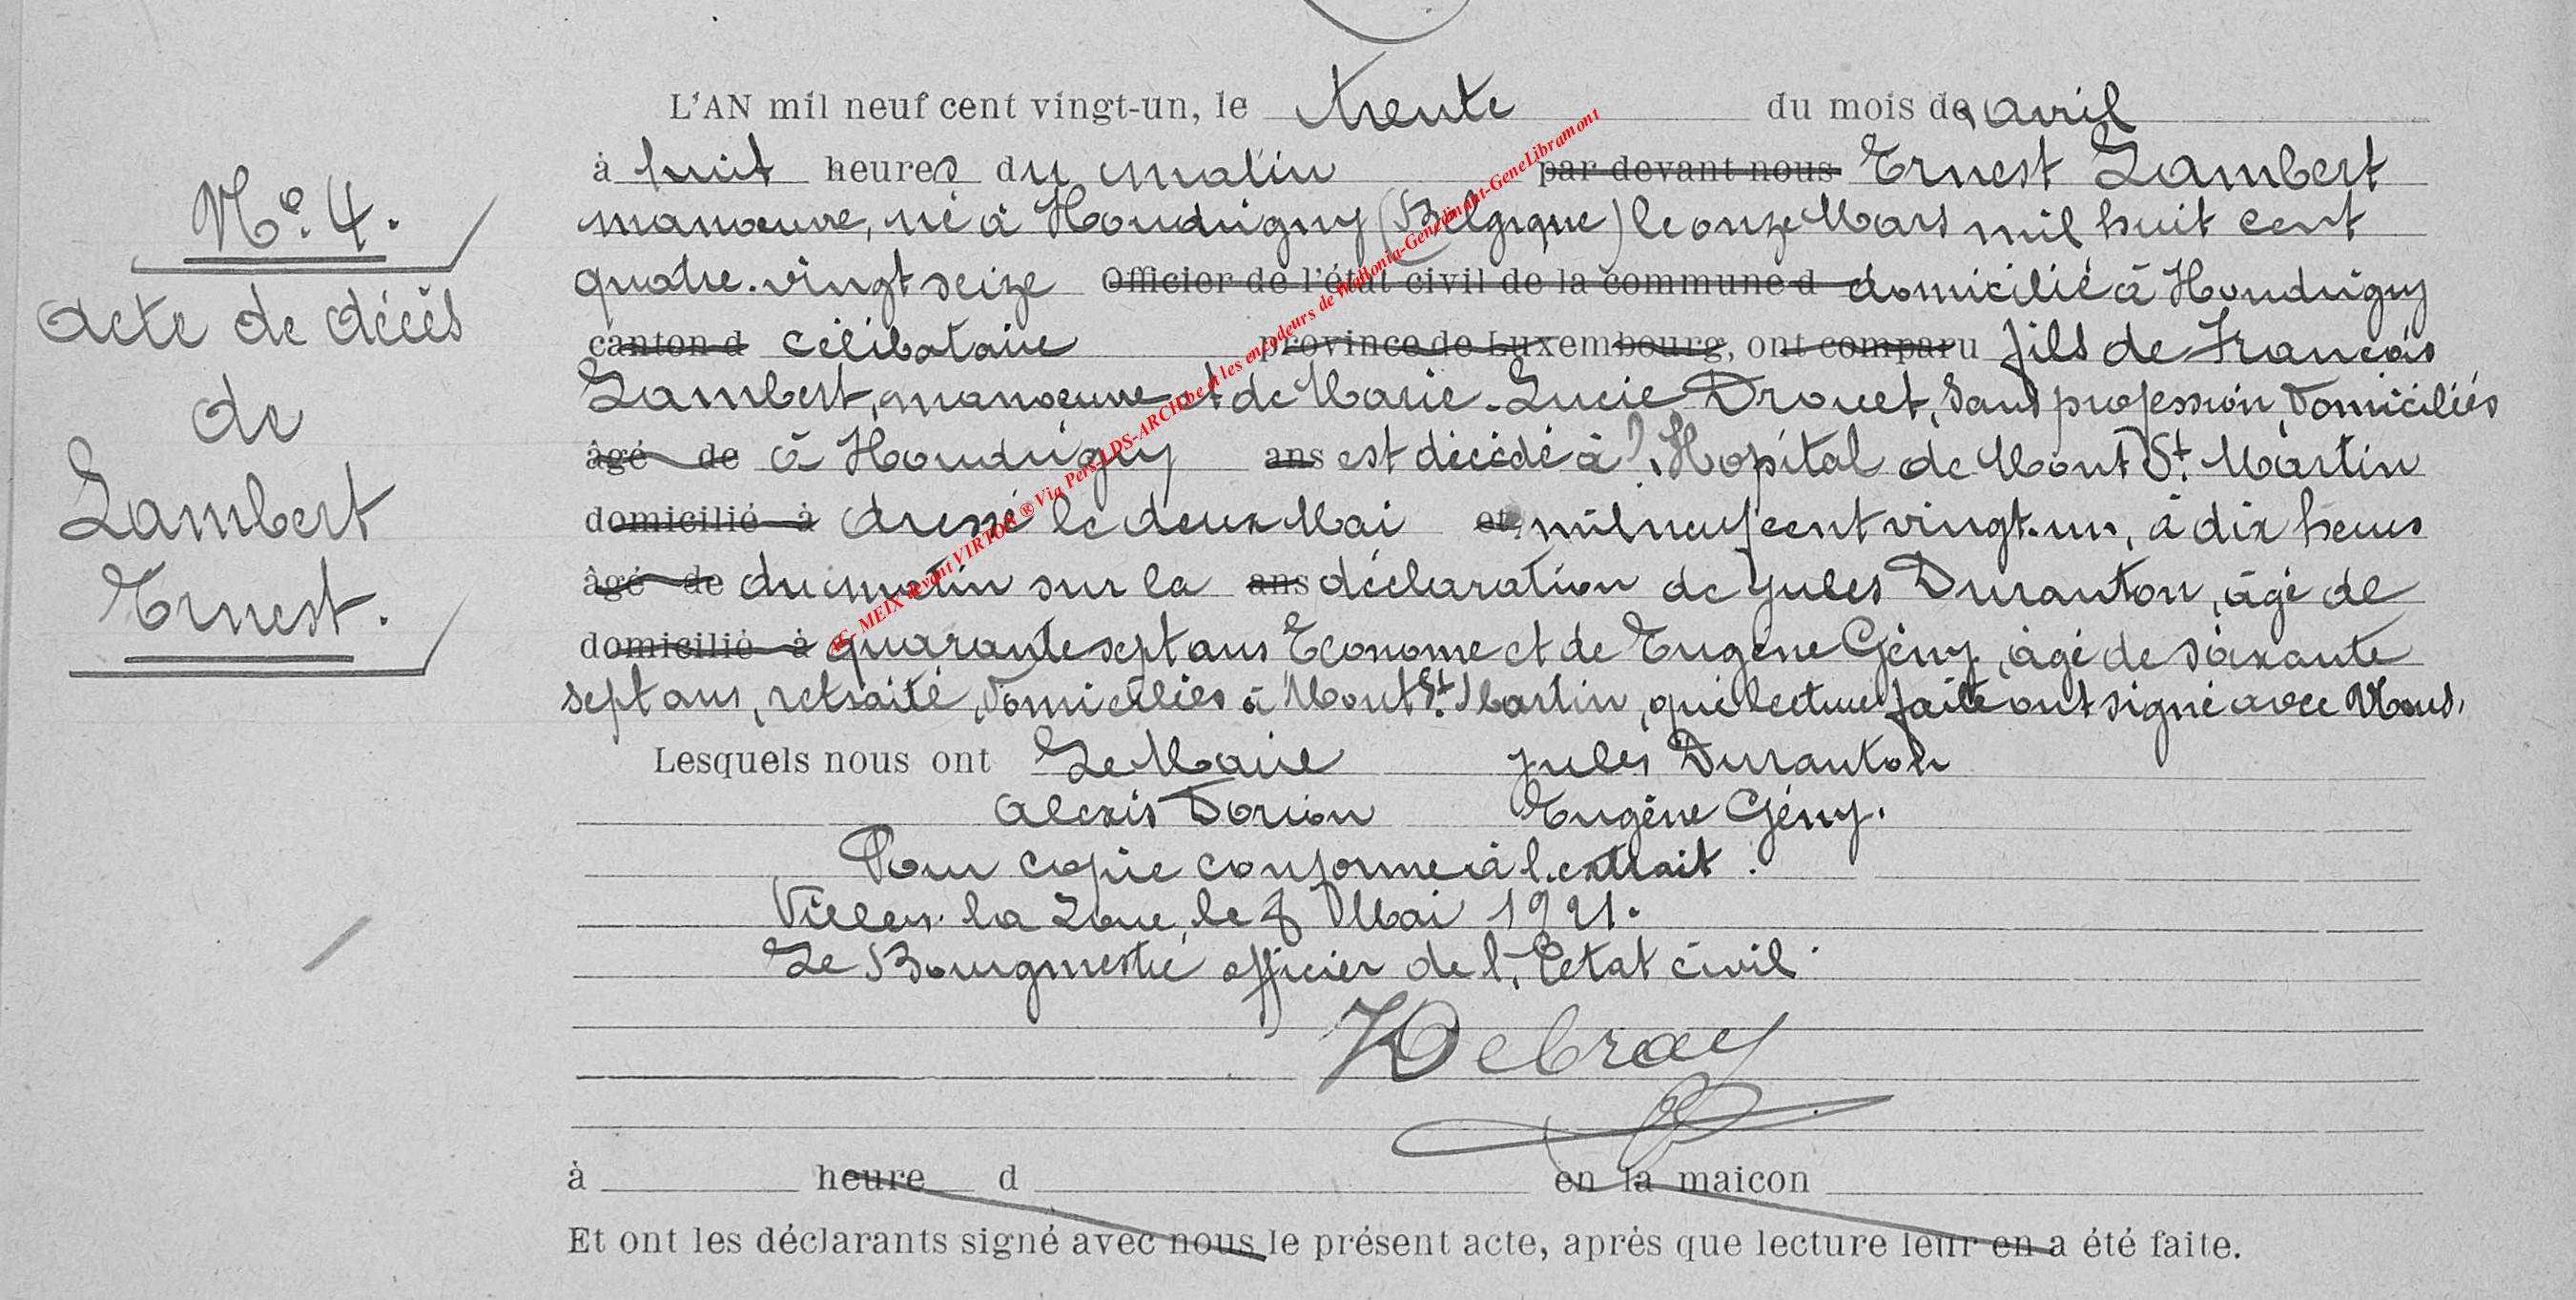 L'AN mil neuf cent vingt-un, le trente du mois de avril
à huit heures du matin par devant nous Ernest Lambert
manœuvre, né à Houdrigny (Belgique) le onze Mars mil huit cent
quatre-vingt seize Officier de l'état civil de la commune d domicilié à Houdrigny
canton d célibataire province de Luxembourg, ont comparu fils de François
Lambert, manœuvre et de Marie-Lucie Drouet, sans profession, domiciliés
âgé de à Houdrigny ans est décédé à l'Hopital de Mont St. Martin
domicilié à dressé le deux Mai et mil neuf cent vingt-un, à dix heures
âgé de du matin sur la ans déclaration de Jules Duranton, âgé de
domicilié à quarante sept ans Econome et de Eugène Gény, âgé de soixante
sept ans, retraité, domiciliés à Mont St. Martin, qui lecture faite ont signé avec Nous.
Lesquels nous ont Le Maire Jules Duranton
Alexis Dorion Eugène Gény.
Pour copie conforme à l'extrait.
Villers la Loue, le 8 Mai 1921.
Le Bourgmestre officier de l'Etat civil.
Debray
à heure d en la maicon
Et ont les déclarants signé avec nous le présent acte, après que lecture leur en a été faite.
N° 4.
Acte de décès
de
Lambert
Ernest.
MEIX devant VIRTON ® Via Pers-LDS-ARCH.be et les encodeurs de Wallonia-GeneDinant-GeneLibramont